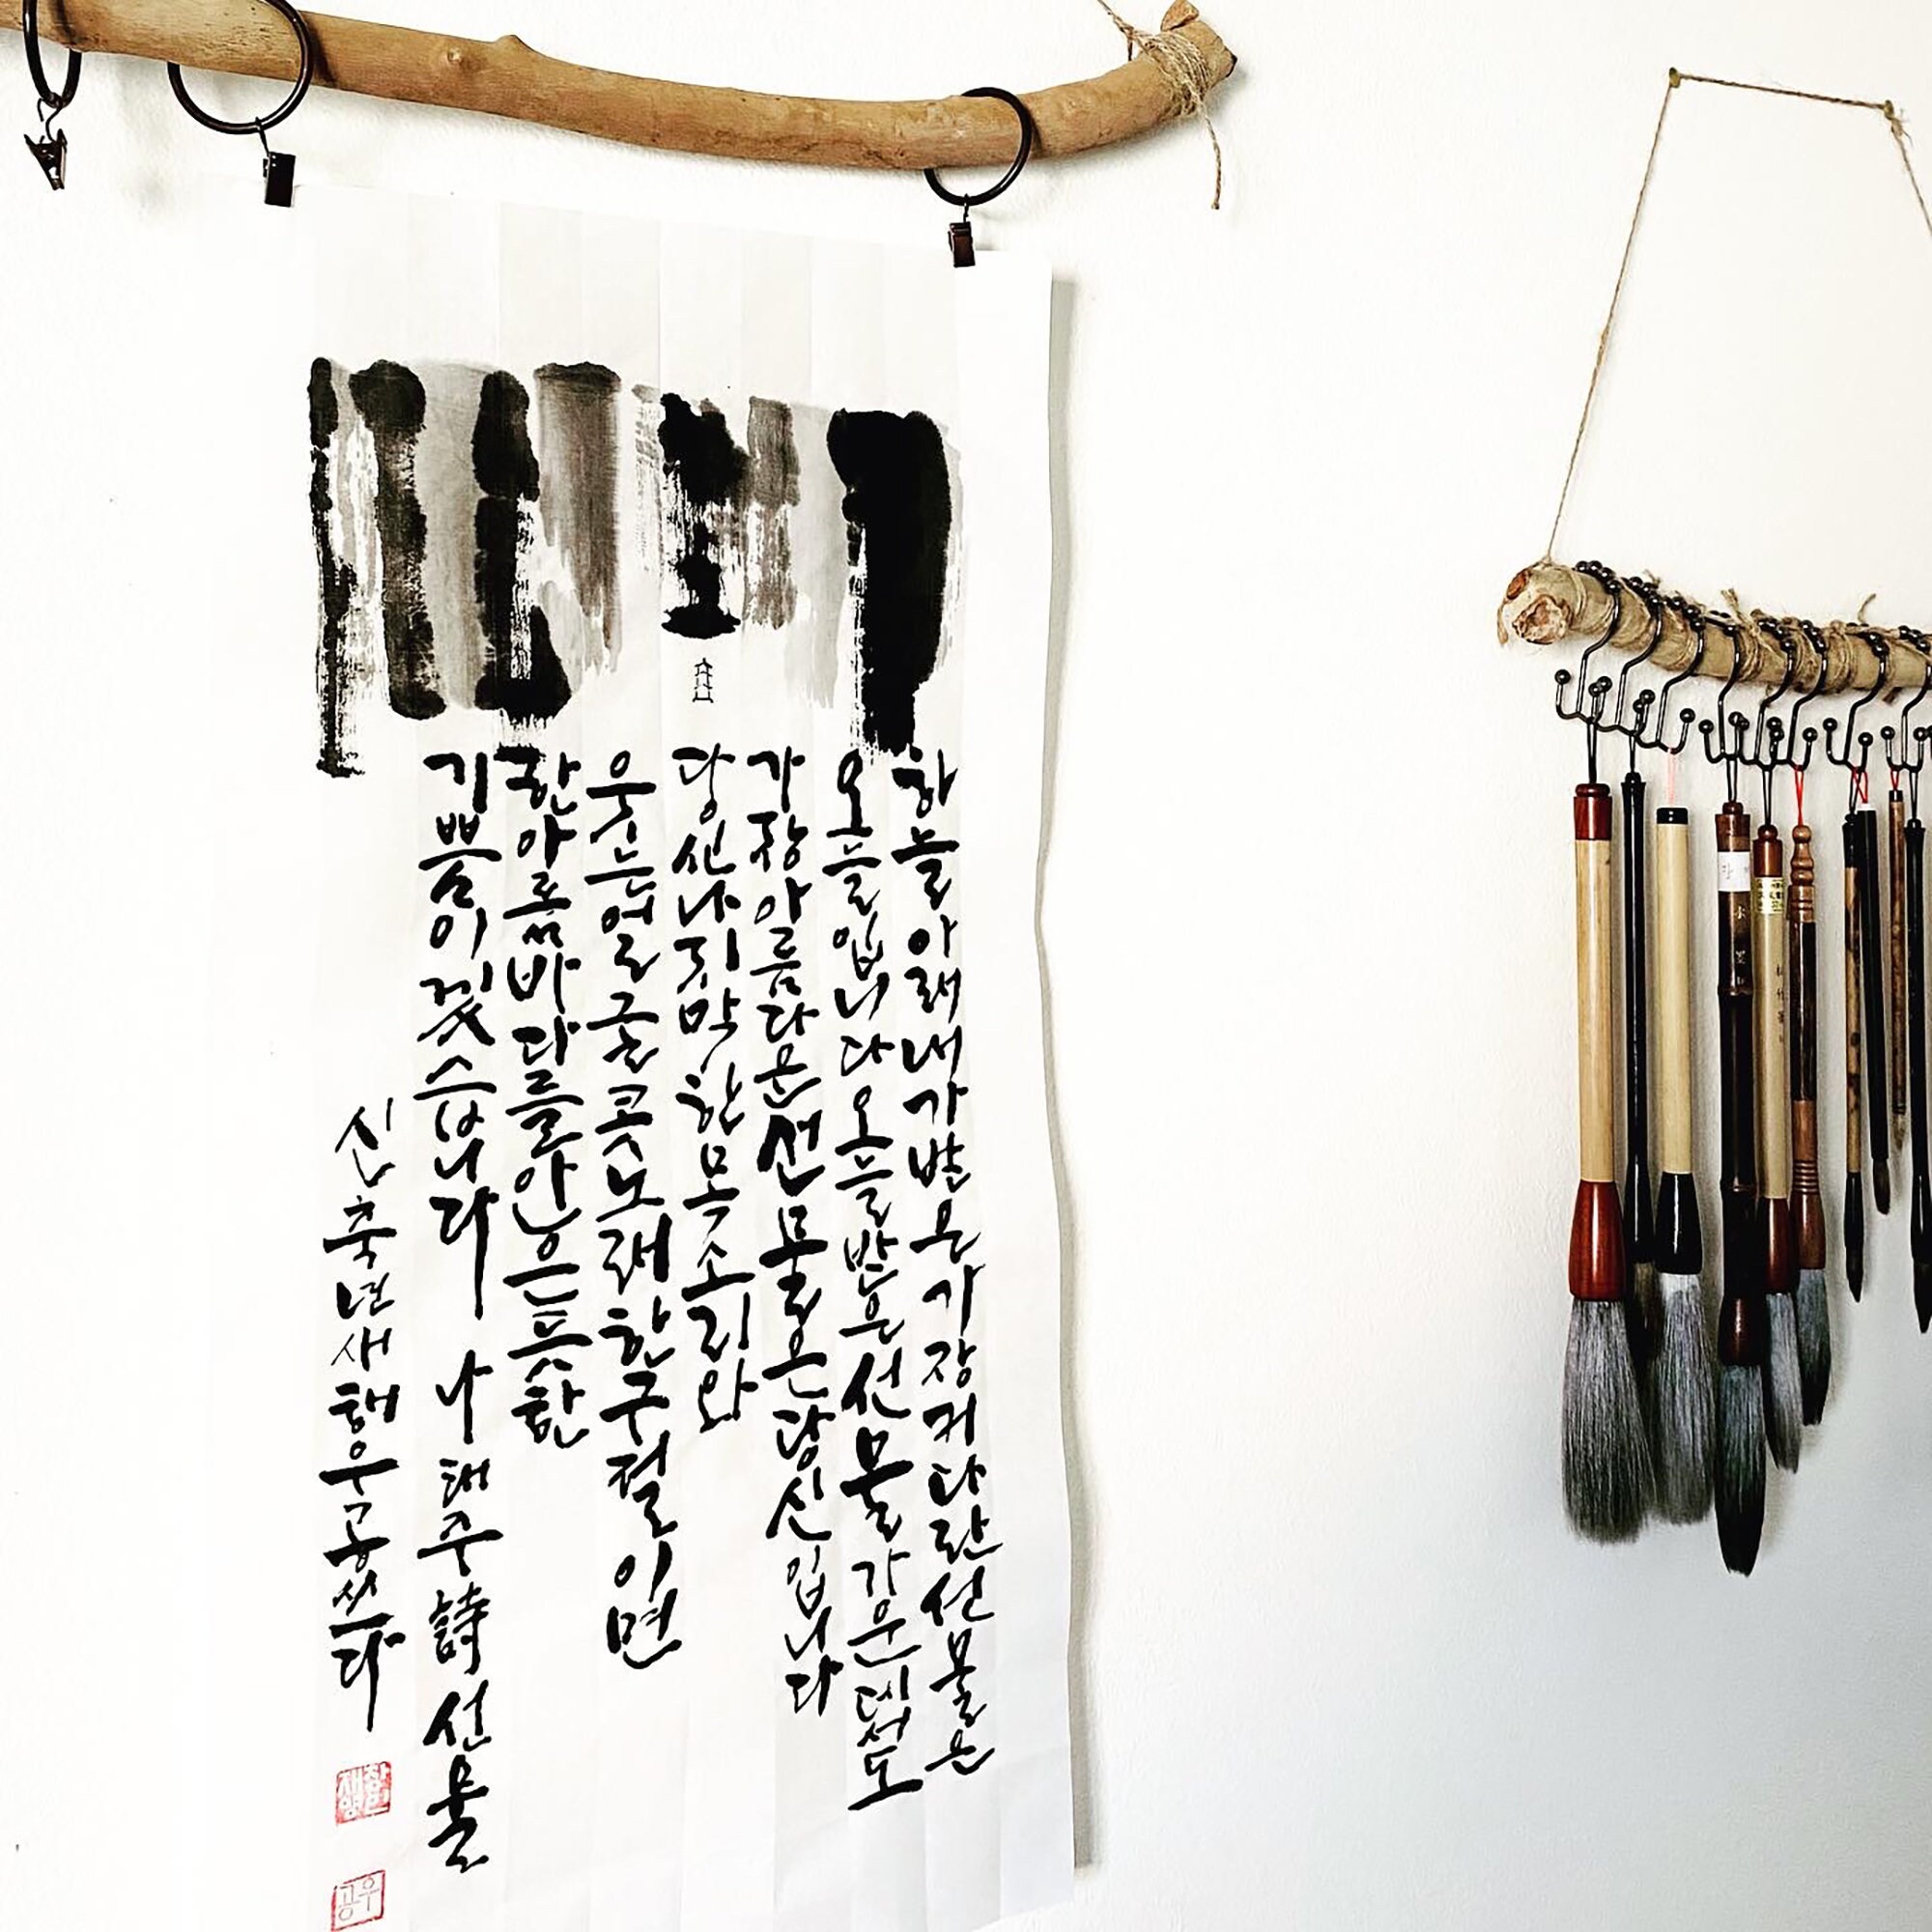 하늘아래내가받은가장커다란선물은
오늘입니다오늘받은선물가운데서도
가장아름다운선물은당신입니다
당신나지막한목소리와
웃는얼굴콧노래한구절이면
한아름바다를안은듯한
기쁨이겠습니다 나태주詩선물
신축년새해우공쓰다
우공